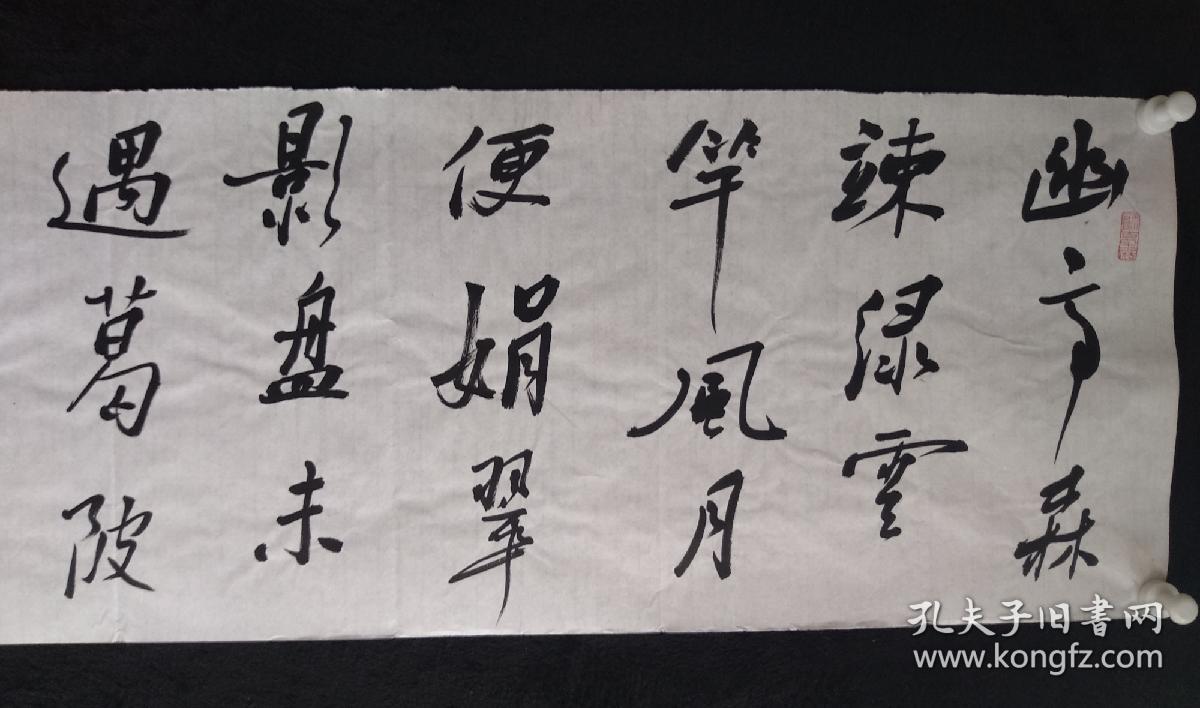 幽亭森
竦渌雲
竿風月
便娟翠
影盘未
遇葛陂
孔夫子旧書网
www.kongfz.com